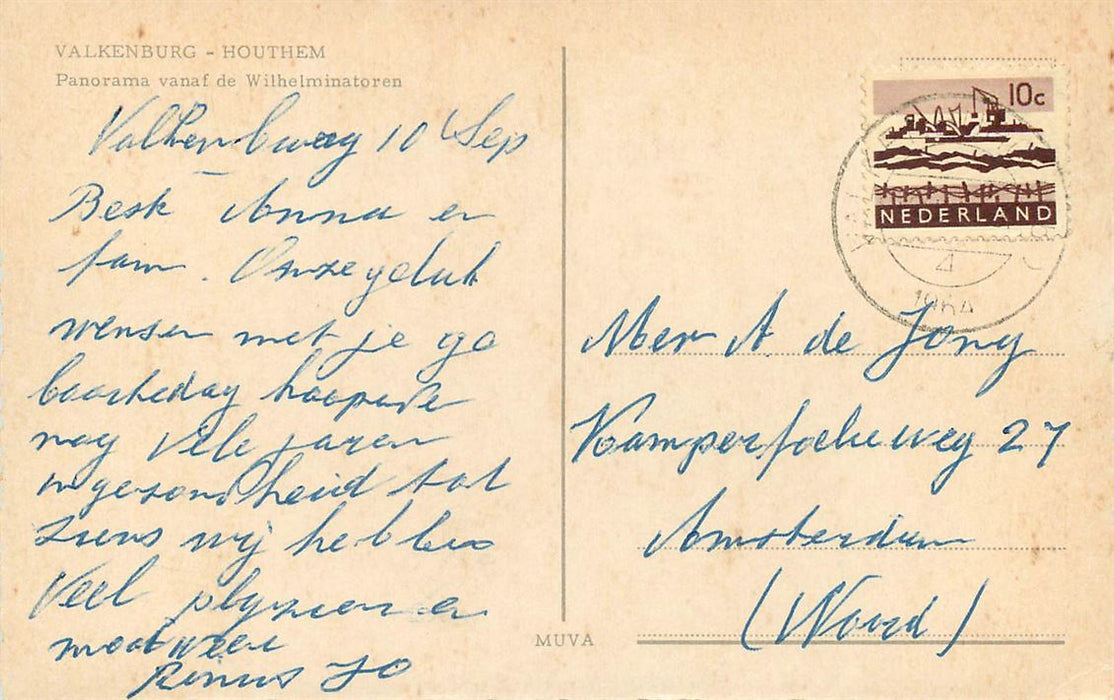 VALKENBURG - HOUTHEM
Panorama vanaf de Wilhelminatoren
Valkenburg 10 Sep
Best Anna en
fam. Onze geluk
wensen met je ge
boortedag hoopende
nog vele jaren
in gezondheid tot
ziens wij hebben
veel plyzier en
mooi weer
Rinus Jo
MUVA
10c
NEDERLAND
4
1964
Mer A de Jong
Kamperfoelieweg 27
Amsterdam
(Noord)